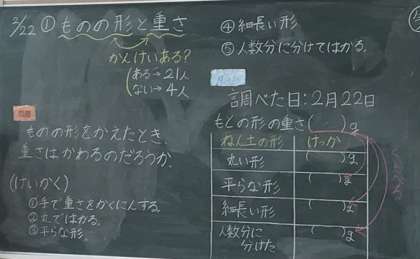 2/22 ① ものの形と重さ
かんけいある?
ある→21人
ない→4人
ものの形をかえたとき、
重さはかわるのだろうか。
(けいかく)
①手で重さをかくにんする。
②丸ではかる。
③平らな形。
④細長い形
⑤人数分に分けてはかる。
調べた日:2月22日
もとの形の重さ( )g
ねん土の形 けっか
丸い形 ( )g
平らな形 ( )g
細長い形 ( )g
人数分に分けた ( )g